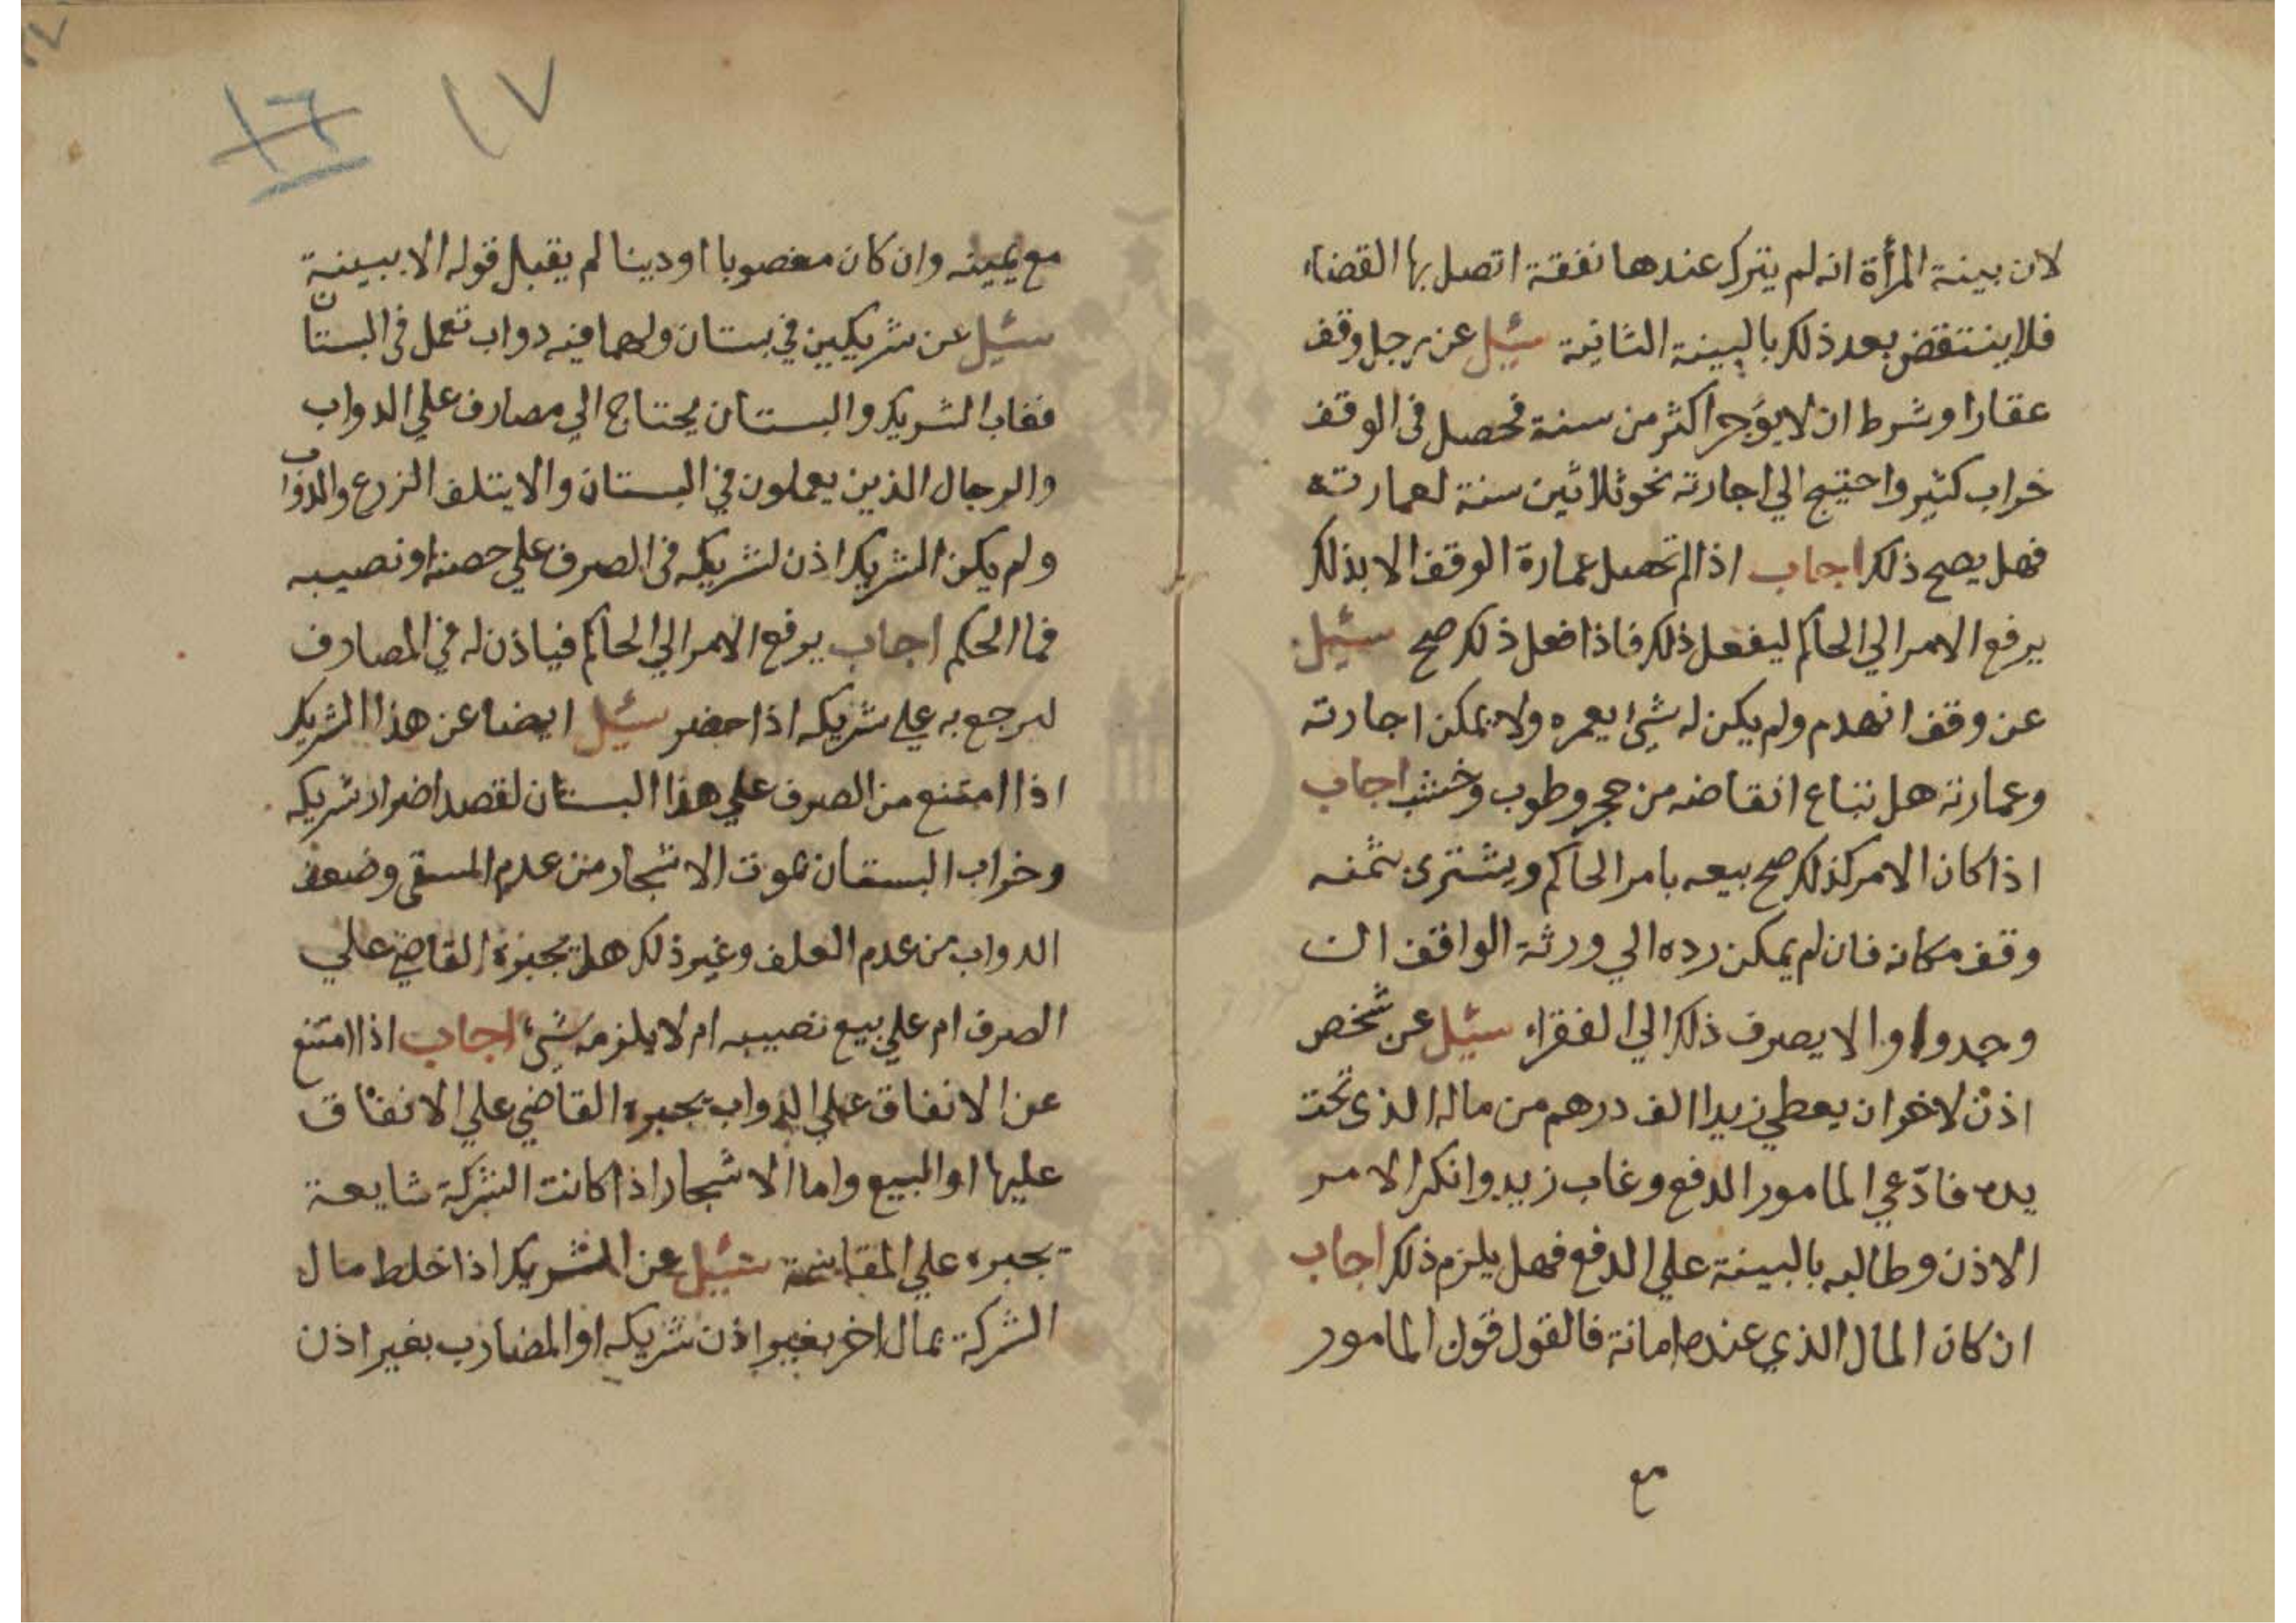 لان بينة المرأة انه لم يترك عندها نفقة اتصل بها القضاء
فلا ينتقض بعد ذلك بالبينة الثانية سئل عن رجل وقف
عقارا وشرط ان لا يؤجر اكثر من سنة فحصل في الوقف
خراب كثير واحتيج الي اجارته نحو ثلاثين سنة لعمارته
فهل يصح ذلك اجاب اذا لم تحصل عمارة الوقف الا بذلك
يرفع الامر الي الحاكم ليفعل ذلك فاذا فعل ذلك صح سئل
عن وقف انهدم ولم يكن له شئ يعمره ولا يمكن اجارته
وعمارته هل تباع انقاضه من حجر وطوب وخشب اجاب
اذا كان الامر كذلك صح بيعه بامر الحاكم ويشترى بثمنه
وقف مكانه فان لم يمكن رده الي ورثة الواقف ان
وجدوا والا يصرف ذلك الي الفقراء سئل عن شخص
اذن لاخر ان يعطي زيدا الف درهم من ماله الذى تحت
يده فادّعي المامور الدفع وغاب زيد وانكر الامر
الاذن وطالبه بالبينة علي الدفع فهل يلزم ذلك اجاب
ان كان المال الذي عنده امانة فالقول قول المامور
مع
١٧
١٦
مع يمينه وان كان مغصوبا او دينا لم يقبل قوله الا ببينة
سئل عن شريكين في بستان ولهما فيه دواب تعمل في البستان
فغاب الشريك والبستان يحتاج الي مصارف علي الدواب
والرجال الذين يعملون في البستان والا يتلف الزرع والدواب
ولم يكن الشريك اذن لشريكه في الصرف علي حصته او نصيبه
فما الحكم اجاب يرفع الامر الي الحاكم فياذن له في المصارف
ليرجع به علي شريكه اذا حضر سئل ايضا عن هذا الشريك
اذا امتنع من الصرف علي هذا البستان لقصد اضرار شريكه
وخراب البستان بموت الاشجار من عدم السقي وضعف
الدواب من عدم العلف وغير ذلك هل يجبره القاضي علي
الصرف ام علي بيع نصيبه ام لا يلزمه شئ اجاب اذا امتنع
عن الانفاق علي الدواب يجبره القاضي علي الانفاق
عليها او البيع واما الاشجار اذا كانت الشركة شايعة
يجبره علي المقاسمة سئل عن الشريك اذا خلط مال
الشركة بمال اخر بغير اذن شريكه او المضارب بغير اذن